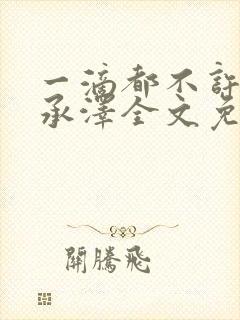 一滴都不許
承澤全文免
開騰飛